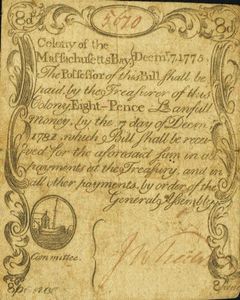 8d 5610 8d
Colony of the
Massachusetts Bay Decem. 7, 1775
The Possessor of this Bill shall be
paid, by the Treasurer of this
Colony Eight-Pence Lawfull
money, by the 7 day of Decem.
1782, which Bill shall be recei
ved for the aforesaid sum in all
payments at the Treasury, and in
all other payments, by order of the
General Assembly
Committee.
8d